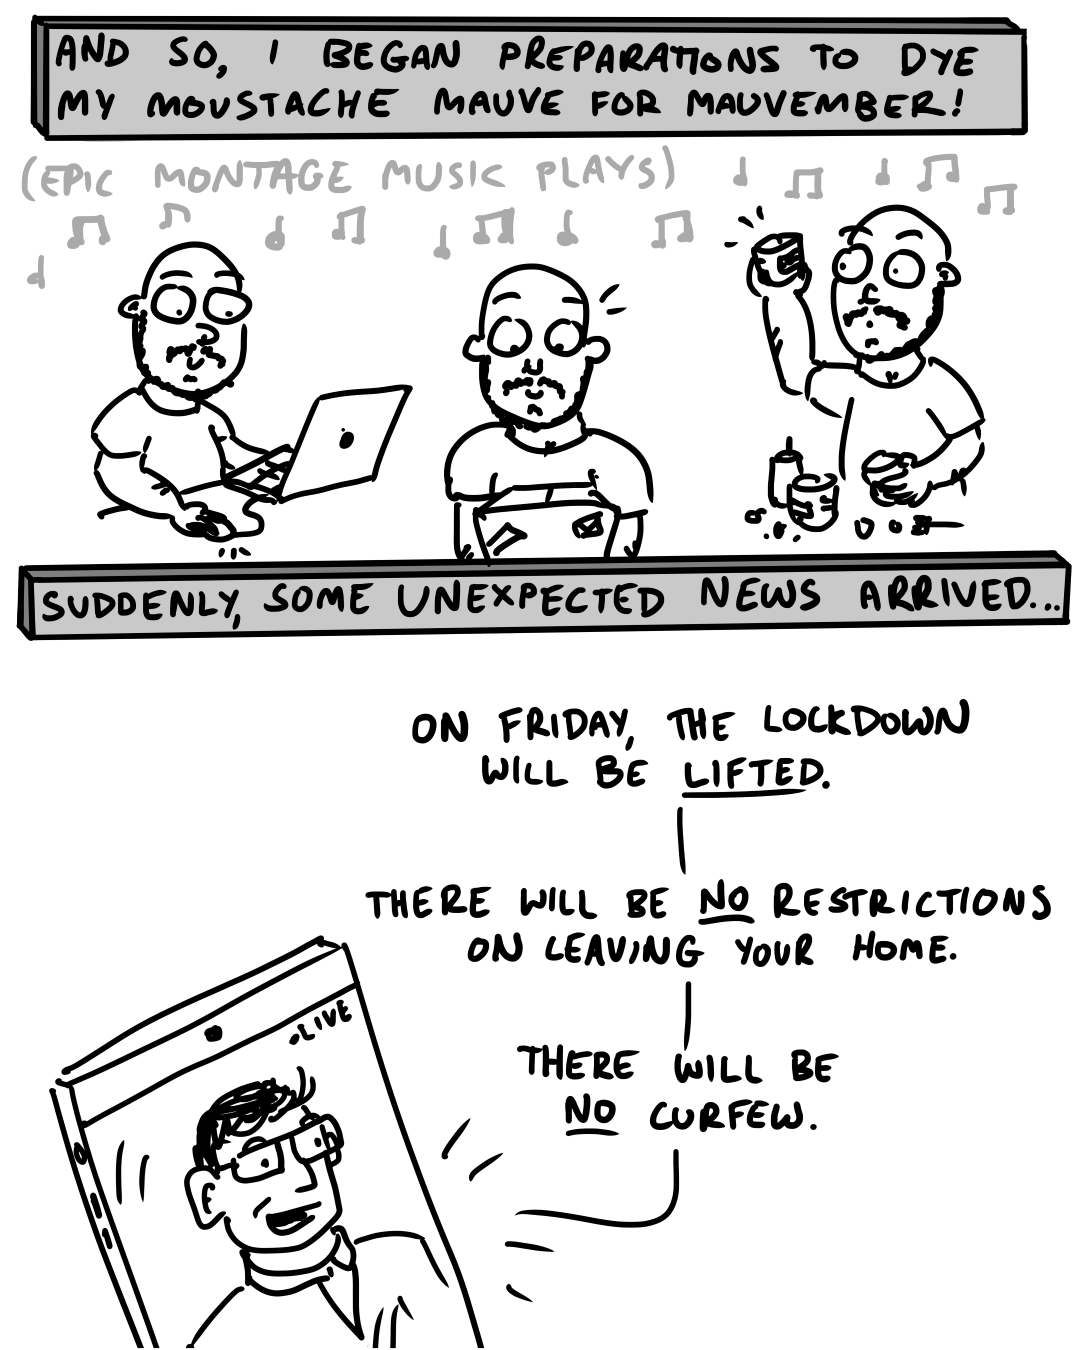 AND SO, I BEGAN PREPARATIONS TO DYE
MY MOUSTACHE MAUVE FOR MAUVEMBER!
(EPIC MONTAGE MUSIC PLAYS)
SUDDENLY, SOME UNEXPECTED NEWS ARRIVED...
ON FRIDAY, THE LOCKDOWN
WILL BE LIFTED.
THERE WILL BE NO RESTRICTIONS
ON LEAVING YOUR HOME.
THERE WILL BE
NO CURFEW.
LIVE